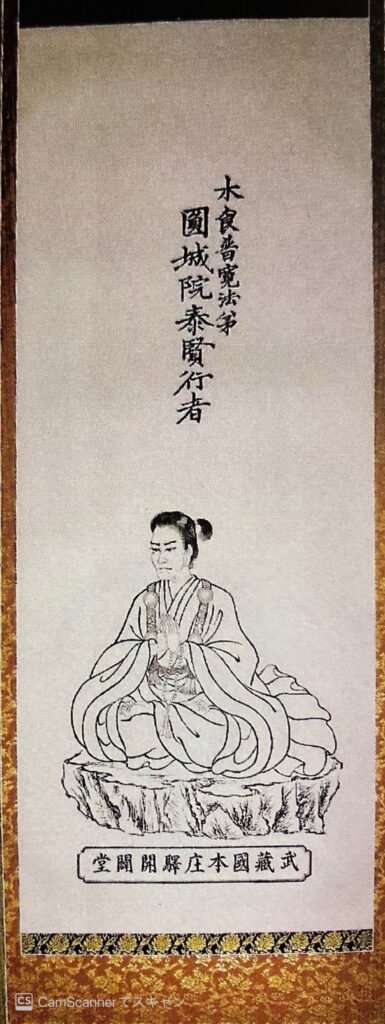 木食普寛法弟
圓城院泰賢行者
武藏國本庄驛開闢堂
CS CamScanner でスキャン